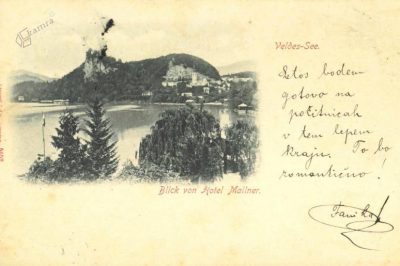 kamra
Veldes-See.
Letos bodem
gotovo na
počitnicah
v tem lepem
kraju. To bo
romantično!
Fanika
Blick von Hotel Mallner.